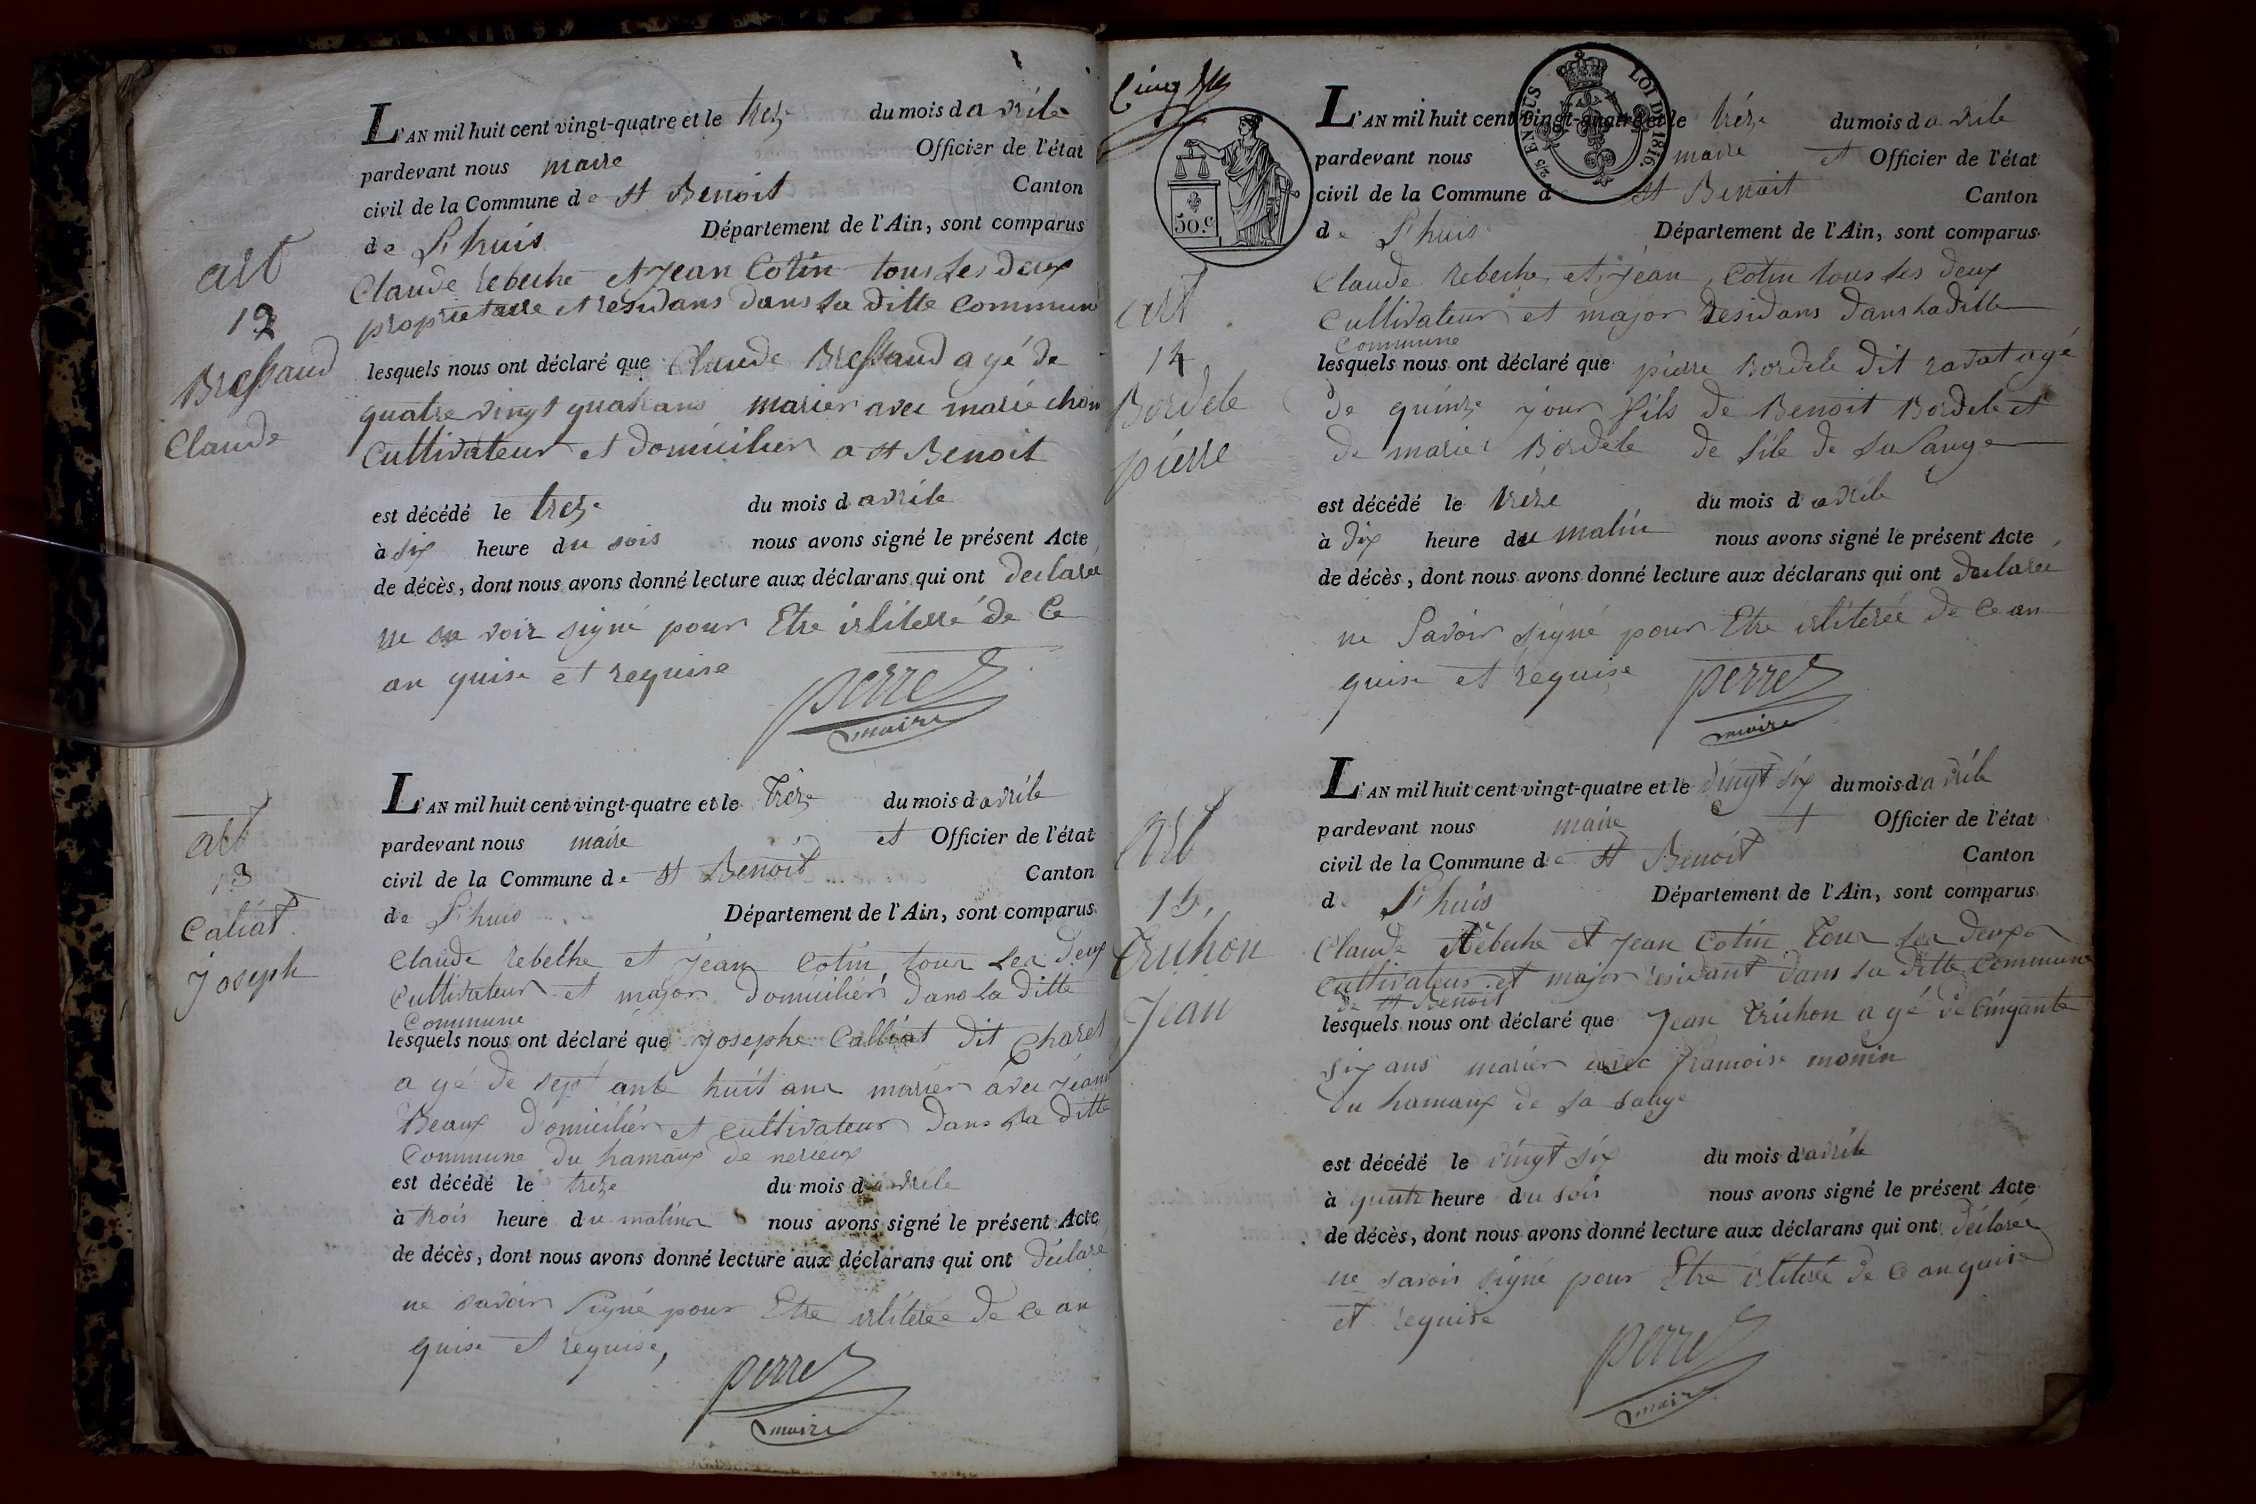 art
12
Bressaud
Claude
L'AN mil huit cent vingt-quatre et le treze du mois d avrile
pardevant nous maire Officier de l'état
civil de la Commune de St Benoit Canton
de Lhuis Département de l'Ain, sont comparus
Claude rebeche et jean Cotin tous les deux
proprietaire et residans dans la ditte Commune
lesquels nous ont déclaré que Claude Bressaud agé de
quatre vingt quatrans marier avec marie chon
Cultivateur et domicilier a St Benoit
est décédé le treze du mois d avrile
à six heure du soir nous avons signé le présent Acte
de décès, dont nous avons donné lecture aux déclarans qui ont declaré
ne sa voir signé pour Etre irliterré de Ce
an quise et requise
perret
maire
art
13
Caliat
joseph
L'AN mil huit cent vingt-quatre et le treze du mois d avrile
pardevant nous maire et Officier de l'état
civil de la Commune de St Benoit Canton
de Lhuis Département de l'Ain, sont comparus
Claude rebeche et jean Cotin tous les deux
Cultivateur et major domicilier dans la ditte
Commune
lesquels nous ont déclaré que josephe Calliat dit Charet
a gé de sept ante huit ans marier avec jeane
Beaux domicilier et cultivateur dans la ditte
Commune du hamaux de nerieux
est décédé le treze du mois d avrile
à trois heure du matin nous avons signé le présent Acte
de décès, dont nous avons donné lecture aux déclarans qui ont déclaré
ne savoir signé pour Etre irliterée de ce an
quise et requise,
perret
maire
50.c
2/5 EN SUS LOI DE 1816.
art
14
Bordele
pierre
L'AN mil huit cent vingt-quatre et le tréze du mois d avrile
pardevant nous maire et Officier de l'état
civil de la Commune d St Benoit Canton
de Lhuis Département de l'Ain, sont comparus
Claude rebeche et jean Cotin tous les deux
Cultivateur et major residans dans la ditte
Commune
lesquels nous ont déclaré que pierre Bordele dit ravat agé
de quinze jour fils de Benoit Bordele et
de marie Bordele de lile de la Sauge
est décédé le tréze du mois d avrile
à dix heure du matin nous avons signé le présent Acte
de décès, dont nous avons donné lecture aux déclarans qui ont declaré
ne Savoir signé pour Etre irliterée de Ce an
quise et requise
perret
maire
art
15
Truhon
jean
L'AN mil huit cent vingt-quatre et le vingt six du mois d'avrile
pardevant nous maire et Officier de l'état
civil de la Commune de St Benoit Canton
de Lhuis Département de l'Ain, sont comparus
Claude Rebeche et jean Cotin tous les deux
Cultivateur et major residant dans la ditte Commune
de St Benoit
lesquels nous ont déclaré que jean Truhon a gé de Cinqante
six ans marier avec framoise monin
du hamaux de la Sauge
est décédé le vingt six du mois d'avrile
à heure du soir nous avons signé le présent Acte
de décès, dont nous avons donné lecture aux déclarans qui ont déclaré
ne savoir signé pour Etre irliterée de Ce anquise
et requise
perret
maire